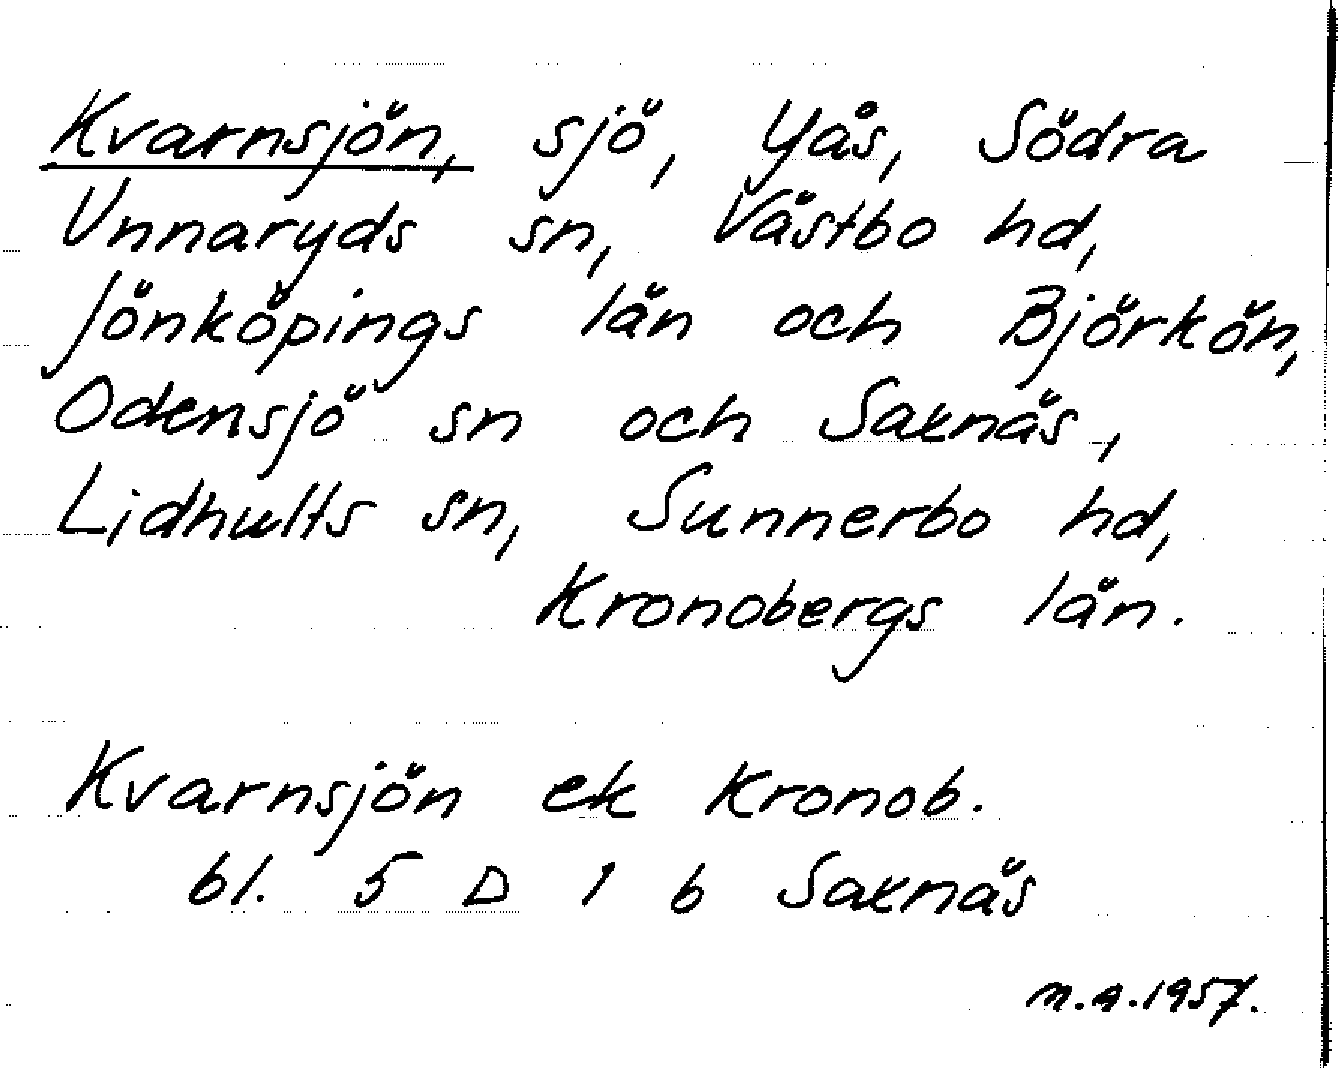 Kvarnsjön, sjö, Yås, Södra
Unnaryds sn, Västbo hd,
Jönköpings län och Björkön,
Odensjö sn och Saxnäs,
Lidhults sn, Sunnerbo hd,
Kronobergs län.
Kvarnsjön ek Kronob.
bl. 5 D 1 b Saxnäs
n.a.1957.